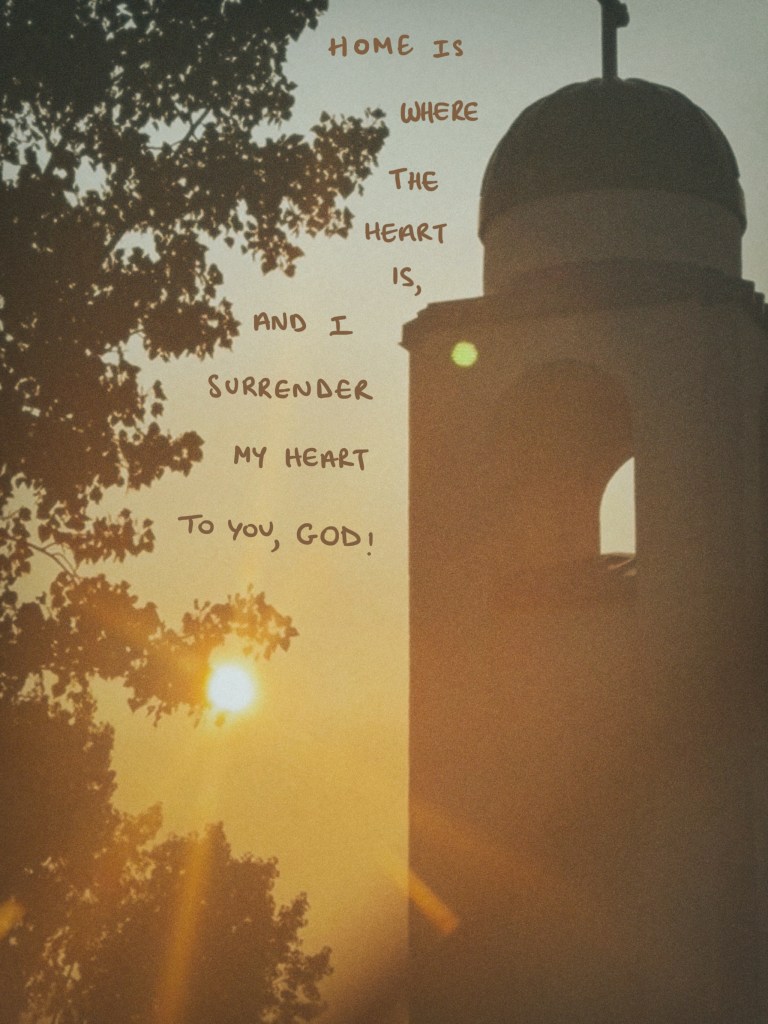 HOME IS
WHERE
THE
HEART
IS,
AND I
SURRENDER
MY HEART
TO YOU, GOD!